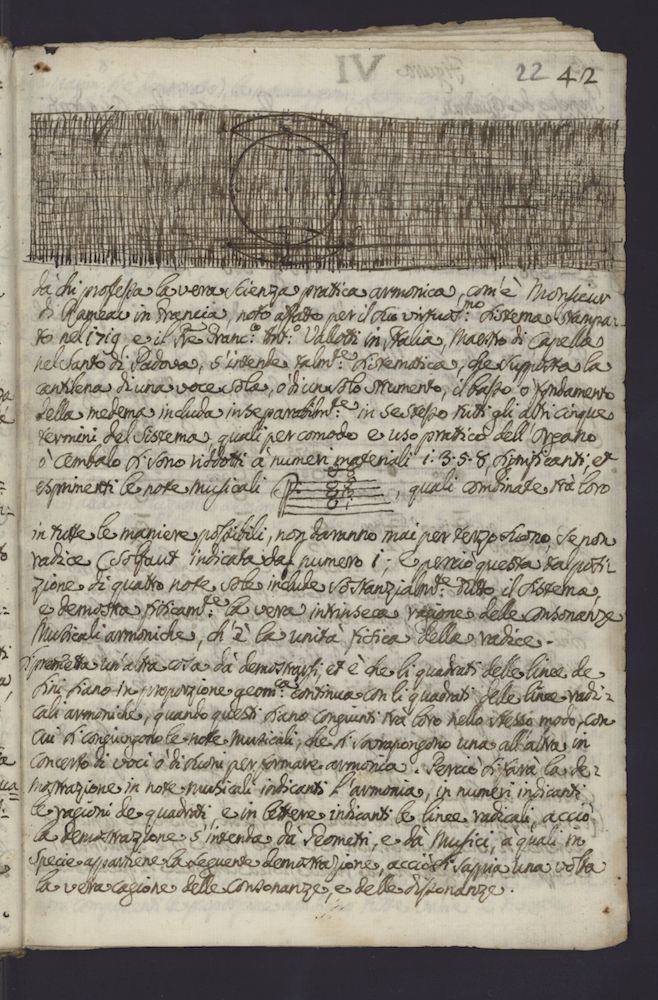 22 42
dà chi professa la vera scienza pratica armonica, com'è Monsieur
di Rameau in Francia, noto affatto per il suo virtuos.mo sistema stampa-
to nel 1719, e il Pre Franc.o Ant.o Vallotti in Italia, Maestro di Capella
nel Santo di Padova, s'intende talm.te sistematica, che supposta la
cantilena di una voce sola, o di un solo strumento, il basso o fondamento
della medema includa inseparabilm.te in se stesso tutti gli altri cinque
termini del Sistema, quali per comodo e uso pratico dell'Organo
ò Cembalo si sono ridotti à numeri materiali 1. 3. 5. 8, significanti, et
esprimenti le note musicali , quali combinate trà loro
in tutte le maniere possibili, non daranno mai per terzo suono, se non
radice C solfaut indicata dal numero 1; e perciò questa tal posi-
zione di quattro note sole include sostanzialm.te tutto il sistema,
e demostra fisicam.te la vera intrinseca ragione delle consonanze
Musicali armoniche, ch'è la unità fisica della radice.
Si premetta un'altra cosa dà demostrarsi, et è che li quadrati delle linee de
sini siano in proporzione geom.ca continua con li quadrati delle linee radi-
cali armoniche, quando questi siano congiunti trà loro nello stesso modo, con
cui si congiungono le note musicali, che si sovrapongono una all'altra in
concerto di voci ò di suoni per formare armonica. Perciò si farà la de-
mostrazione in note musicali indicanti l'armonia, in numeri indicanti
le ragioni de quadrati, e in lettere indicanti le linee radicali, acciò
la demostrazione s'intenda dà Geometri, e dà Musici, à quali in
specie appartiene la seguente demostrazione, acciò si sappia una volta
la vera cagione delle consonanze, e delle dissonanze.